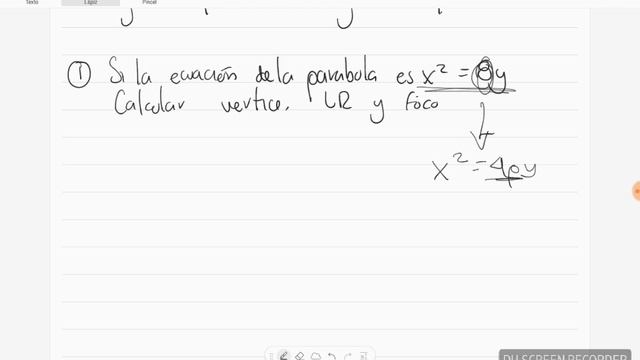 Texto Lápiz Pincel
① Si la ecuación de la parabola es x² = 8y
Calcular vertice, LR y foco
x² = 4py
DU SCREEN RECORDER